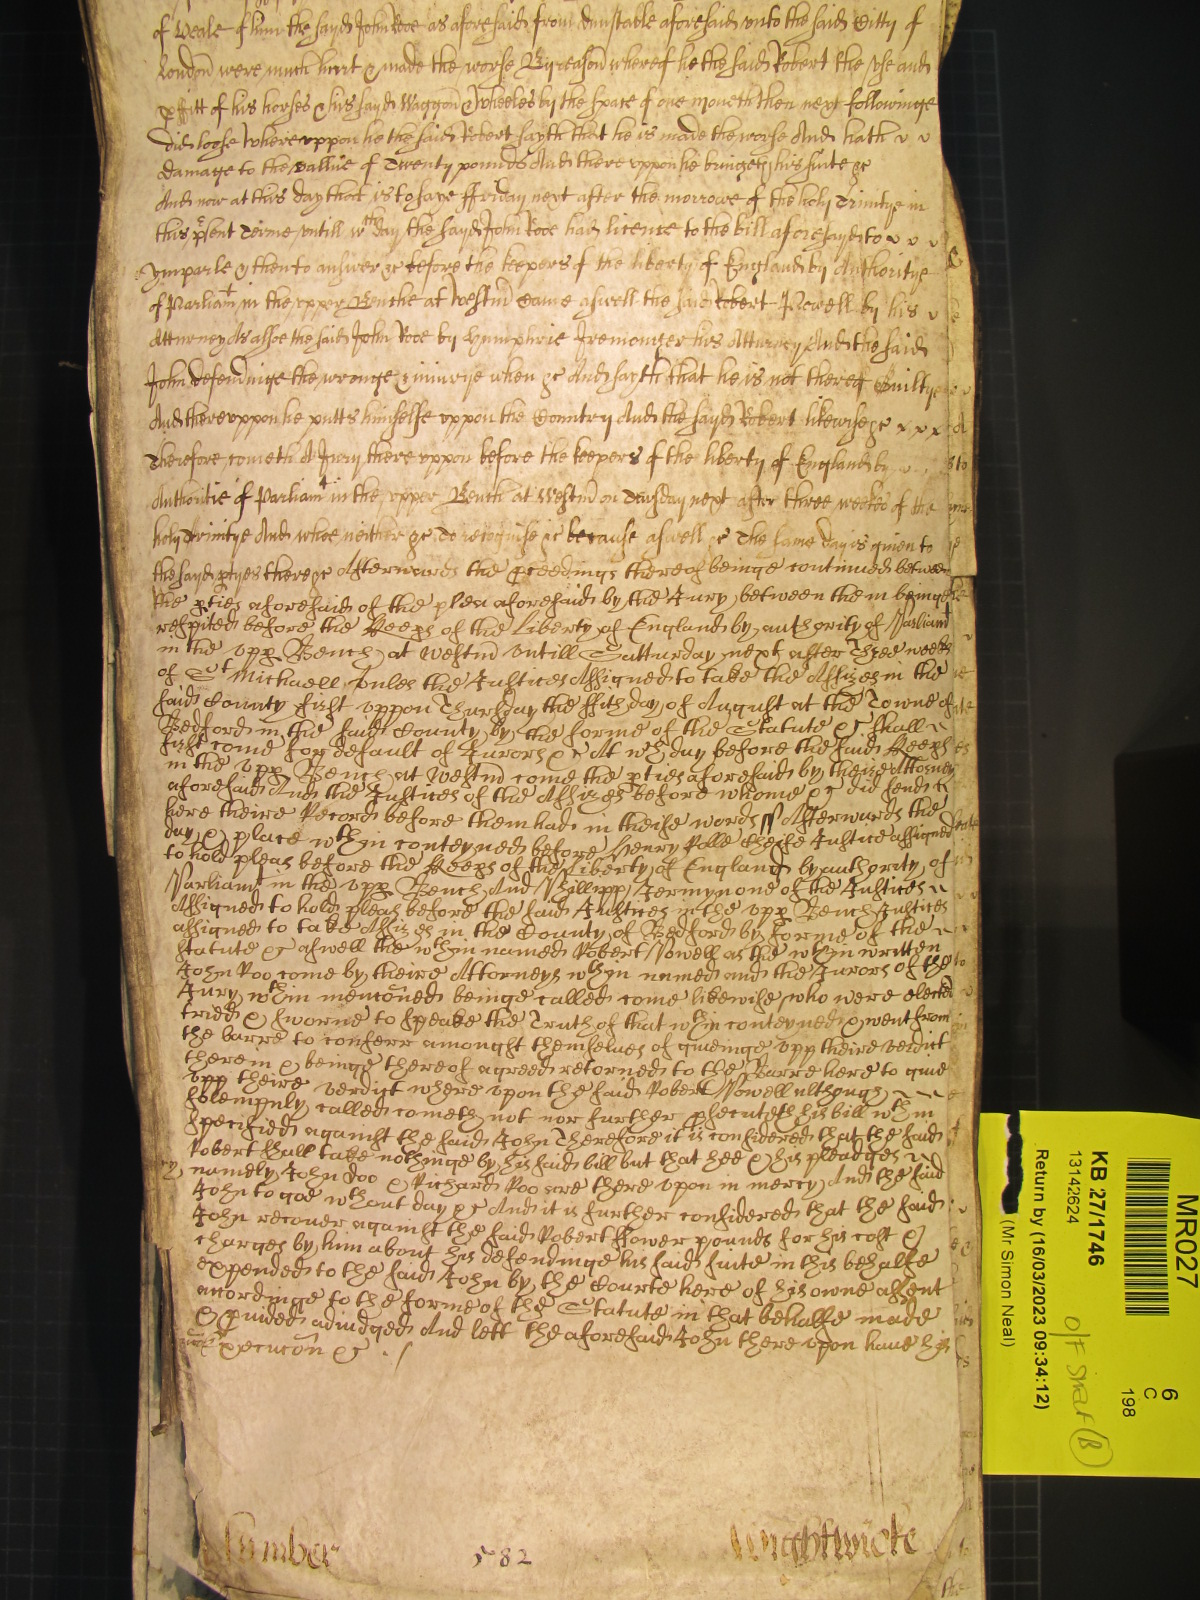 of Weale of him the sayd John Rooe as aforesaid from dunstable aforesaid vnto the said Citty of
London were much hurt & made the worse By reason whereof he the said Robert the vse and
pffitt of his horses & his sayd Waggon & wheeles by the space of one moneth then next followinge
did loose Wherevppon he the said Robert sayth that he is made the worse And hath
damage to the vallue of Twenty pounds And there vppon he bringeth his suite &c
And now at this day that is to saye ffriday next after the morrowe of the holy Trinitye in
this psent Terme vntill wch day the sayd John Rooe had licence to the bill aforesayd to
ymparle & then to answer &c before the keepers of the liberty of England by Authoritye
of Parliamt in the vpper Benche at Westm Came aswell the said Robert Nowell by his
Atturney As alsoe the said John Rooe by Humphrie Iremonger his Atturney And the said
John defendinge the wronge & iniurye when &c And saith that he is not thereof Guiltye
And therevppon he putts himselfe vppon the Country And the sayd Robert likewise &c
Therefore cometh A Jury there vppon before the keepers of the liberty of England by
Authoritie of Parliamt in the vpper Bench at Westm on Tuesday next after three weekes of the
holy Trinitye And whoe neither &c To recognise &c because aswell &c The same day is giuen to
the sayd ptyes there &c Afterwards the pceedings thereof beinge continued between
the pties aforesaid of the plea aforesaid by the Jury between them beinge
respited before the Keeps of the Liberty of England by authority of Parliamt
in the vpp Bench at Westm vntill Satturday next after Three weeks
of St Michaell vnles the Justices Assigned to take the Assizes in the
said County first vppon Thursday the ffifth day of August at the Towne of
Bedford in the said County by the forme of the Statute &c shall
first come for default of Jurors &c At wch day before the said Keeps
in the vpp Bench at Westm come the pties aforesaid by theire Attorneys
aforesaid And the Justices of the Assizes before whome &c did send
here theire Record before them had in theise words // Afterwards the
day & place wthin conteyned before Henry Rolle cheife Justice assigned
to hold pleas before the Keeps of the Liberty of England by authority of
Parliamt in the vpp Bench And Phillipp Jermyn one of the Justices
Assigned to hold pleas before the said Justices in the vpp Bench Justices
assigned to take Assizes in the County of Bedford by forme of the
statute &c aswell the wthin named Robert Nowell as the wthin written
John Roo come by theire Attorneys wthin named and the Jurors of the
Jury wthin menconed beinge called come likewise who were elected
tried & sworne to speake the Truth of that wthin conteyned & went from
the barre to conferr amongst themselues of giueinge vpp theire verdict
therein & beinge thereof agreed retorned to the Barre here to giue
vpp theire verdict where vpon the said Robert Nowell although
solempnly called cometh not nor further psecuteth his bill wthin
specified against the said John Therefore it is considered that the said
Robert shall take nothinge by his said bill but that hee & his pleadges
namely John Doo & Richard Roo are there vpon in mercy And the said
John to goe wthout day &c And it is further considered that the said
John recouer against the said Robert ffower pounds for his cost &
charges by him about his defendinge his said suite in this behalfe
expended to the said John by the Courte here of his owne assent
accordinge to the forme of the Statute in that behalfe made
& puided adiudged And lett the aforesaid John there vpon haue his
execucon &c
Number 582 Wightwicke
MR027
6
C
198
KB 27/1746
13142624
O/F Strat (B)
Return by (16/03/2023 09:34:12)
(Mr Simon Neal)